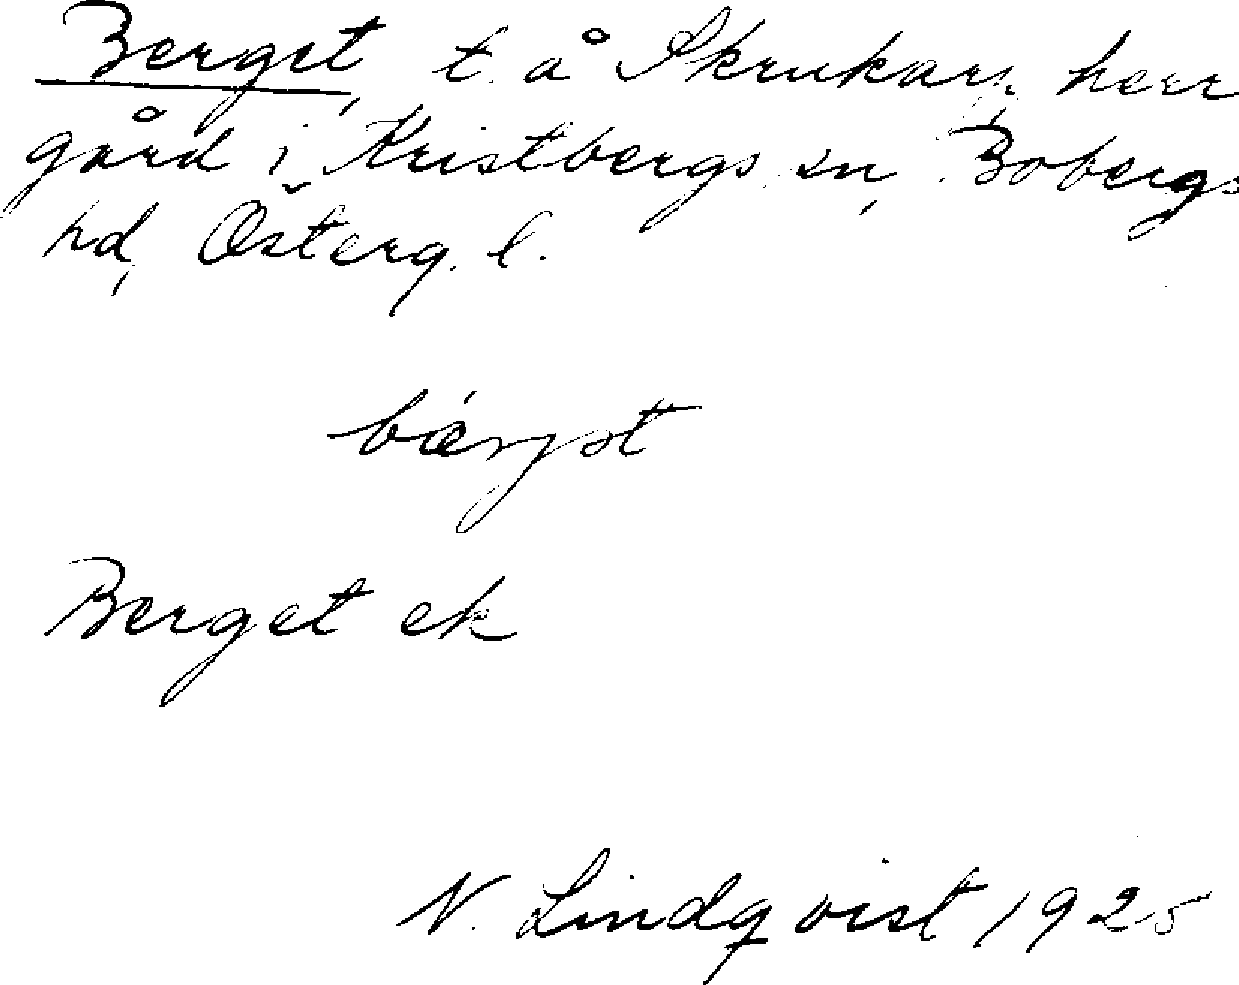 Berget, t. å Skrukarp, herr
gård i Kristbergs sn, Bobergs
hd, Österg. l.
bærjət
Berget ek
N. Lindqvist 1925